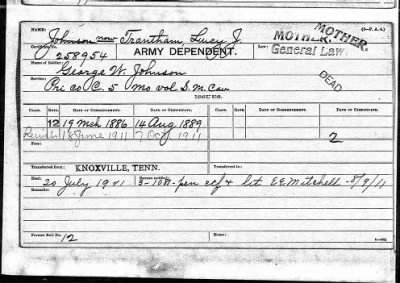 NAME: Johnson now Trantham, Lucy J. (3-F. A. A.)
MOTHER. MOTHER.
Certificate No. 258954 ARMY DEPENDENT. Law: General Law.
Name of Soldier: George W. Johnson
DEAD
Service: Pri co C. 5 Mo vol S. M. Cav
ISSUES.
CLASS. DATE OF COMMENCEMENT. DATE OF CERTIFICATE. CLASS. DATE OF COMMENCEMENT. DATE OF CERTIFICATE.
12 19 Mch 1886 14 Aug 1889
June 1911 7 Oct 1911 2
Transferred from: KNOXVILLE, TENN. Transferred to:
Died: 20 July 1921
Remarks: E E Mitchell - 8/9/11
Former Roll No. 12